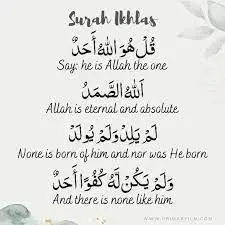 Surah Ikhlas
قُلْ هُوَ اللّٰهُ أَحَدٌ
Say: he is Allah the one
اَللّٰهُ الصَّمَدُ
Allah is eternal and absolute
لَمْ يَلِدْ وَلَمْ يُولَدْ
None is born of him and nor was He born
وَلَمْ يَكُنْ لَهُ كُفُوًا أَحَدٌ
And there is none like him
WWW.PRIMARYILM.COM